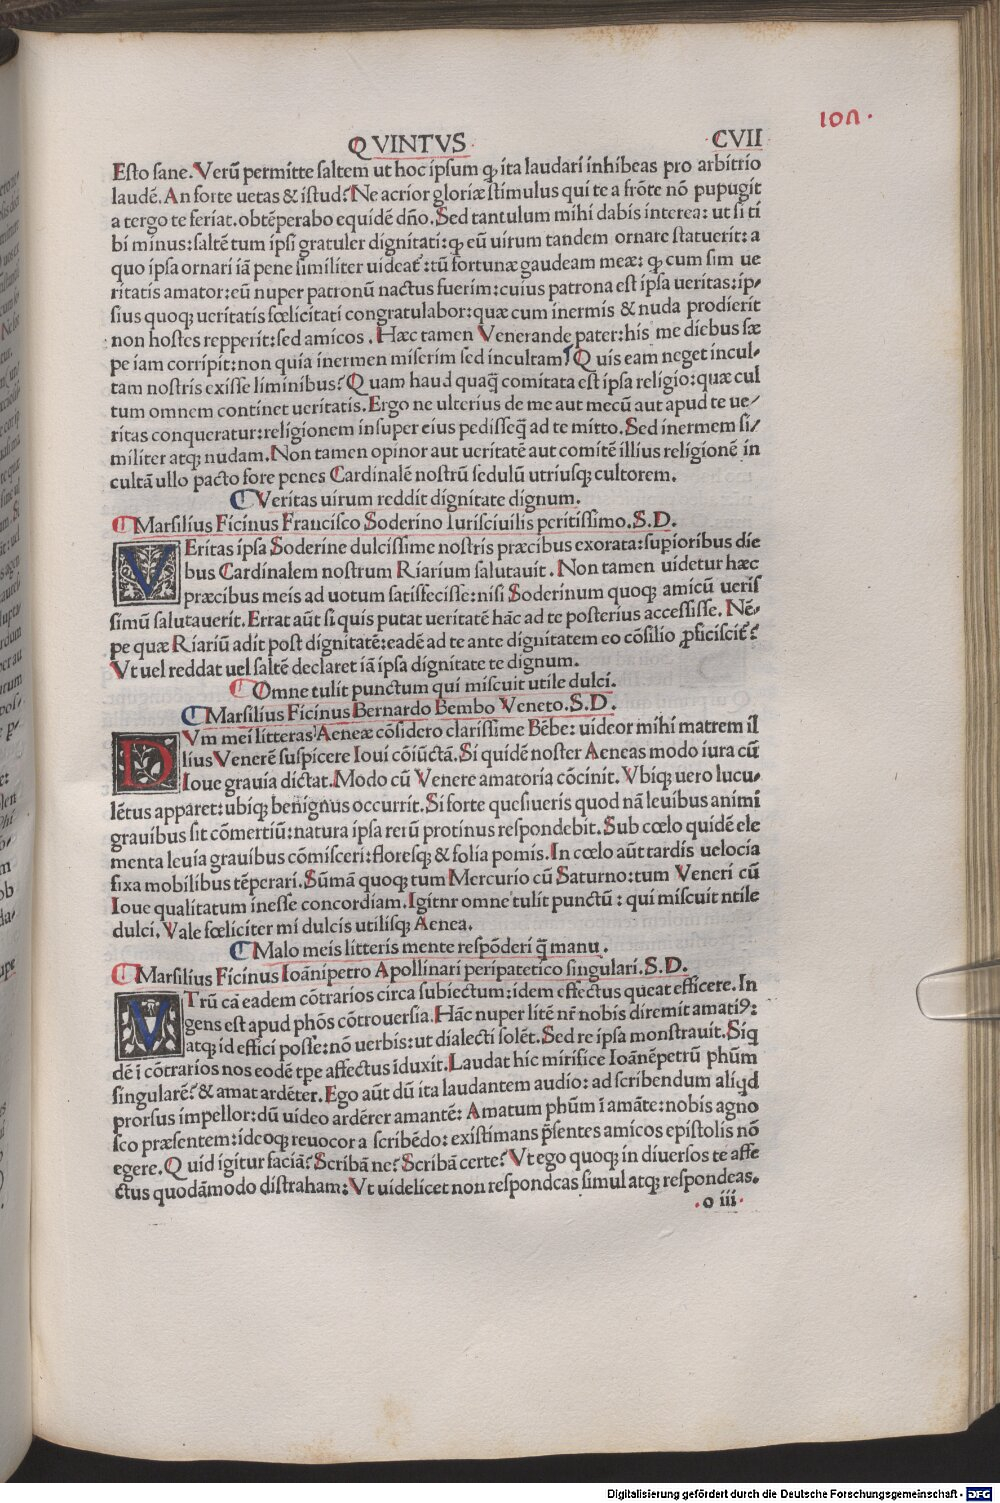 107.
QVINTVS CVII
Eſto ſane. Verū permitte ſaltem ut hoc ipſum ꝙ ita laudari inhibeas pro arbitrio
laudē. An forte uetas & iſtud? Ne acrior gloriæ ſtimulus qui te a frōte nō pupugit
a tergo te feriat. obtēperabo equidē dño. Sed tantulum mihi dabis interea: ut ſi ti
bi minus: ſaltē tum ipſi gratuler dignitati: ꝙ eū uirum tandem ornare ſtatuerit: a
quo ipſa ornari iā pene ſimiliter uideat᷑: tū fortunæ gaudeam meæ: ꝙ cum ſim ue
ritatis amator: eū nuper patronū nactus fuerim: cuius patrona eſt ipſa ueritas: ip⸗
ſius quoq; ueritatis fœlicitati congratulabor: quæ cum inermis & nuda prodierit
non hoſtes repperit: ſed amicos. Hæc tamen Venerande pater: his me diebus ſæ
pe iam corripit: non quia inermen miſerim ſed incultam? Quis eam neget incul⸗
tam noſtris exiſſe liminibus? Quam haud quaq̄ comitata eſt ipſa religio: quæ cul
tum omnem continet ueritatis. Ergo ne ulterius de me aut mecū aut apud te ue⸗
ritas conqueratur: religionem inſuper eius pediſſeq̄ ad te mitto. Sed inermem ſi⸗
militer atq; nudam. Non tamen opinor aut ueritatē aut comitē illius religionē in
cultā ullo pacto fore penes Cardinalē noſtrū ſedulū utriuſq; cultorem.
Veritas uirum reddit dignitate dignum.
Marſilius Ficinus Franciſco Soderino Iuriſciuilis peritiſſimo. S. D.
VEritas ipſa Soderine dulciſſime noſtris præcibus exorata: ſupioribus die
bus Cardinalem noſtrum Riarium ſalutauit. Non tamen uidetur hæc
præcibus meis ad uotum ſatiſfeciſſe: niſi Soderinum quoq; amicū ueriſ
ſimū ſalutauerit. Errat aūt ſi quis putat ueritatē hāc ad te poſterius acceſſiſſe. Nē⸗
pe quæ Riariū adit poſt dignitatē: eadē ad te ante dignitatem eo cōſilio ꝓficiſcit᷑?
Vt uel reddat uel ſaltē declaret iā ipſa dignitate te dignum.
Omne tulit punctum qui miſcuit utile dulci.
Marſilius Ficinus Bernardo Bembo Veneto. S. D.
DVm mei litteras Aeneæ cōſidero clariſſime Bēbe: uideor mihi matrem il
lius Venerē ſuſpicere Ioui cōiūctā. Si quidē noſter Aeneas modo iura cū
Ioue grauia dictat. Modo cū Venere amatoria cōcinit. Vbiq; uero lucu⸗
lētus apparet: ubiq; benignus occurrit. Si forte queſiueris quod nā leuibus animi
grauibus ſit cōmertiū: natura ipſa rerū protinus reſpondebit. Sub cœlo quidē ele
menta leuia grauibus cōmiſceri: floreſq; & folia pomis. In cœlo aūt tardis uelocia
fixa mobilibus tēperari. Sūmā quoq; tum Mercurio cū Saturno: tum Veneri cū
Ioue qualitatum ineſſe concordiam. Igitnr omne tulit punctū: qui miſcuit ntile
dulci. Vale fœliciter mi dulcis utiliſq; Aenea.
Malo meis litteris mente reſpōderi q̄ manu.
Marſilius Ficinus Ioānipetro Apollinari peripatetico ſingulari. S. D.
VTrū cā eadem cōtrarios circa ſubiectum: idem effectus queat efficere. In
gens eſt apud phōs cōtrouerſia. Hāc nuper litē nr̄ nobis diremit amatiꝰ:
atq; id effici poſſe: nō uerbis: ut dialecti ſolēt. Sed re ipſa monſtrauit. Siq
dē ī cōtrarios nos eodē tpe affectus īduxit. Laudat hic mirifice Ioānēpetrū phūm
ſingularē? & amat ardēter. Ego aūt dū ita laudantem audio: ad ſcribendum aliqd
prorſus impellor: dū uideo ardērer amantē: Amatum phūm ī amāte: nobis agno
ſco præſentem: ideoq; reuocor a ſcribēdo: exiſtimans p̄ſentes amicos epiſtolis nō
egere. Quid igitur faciā? Scribā ne? Scribā certe? Vt ego quoq; in diuerſos te affe
ctus quodāmodo diſtraham: Vt uidelicet non reſpondeas ſimul atq; reſpondeas.
o iii
Digitalisierung gefördert durch die Deutsche Forschungsgemeinschaft - DFG